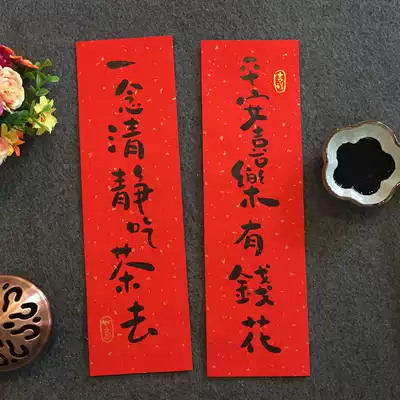 平安喜樂有錢花
一念清靜吃茶去